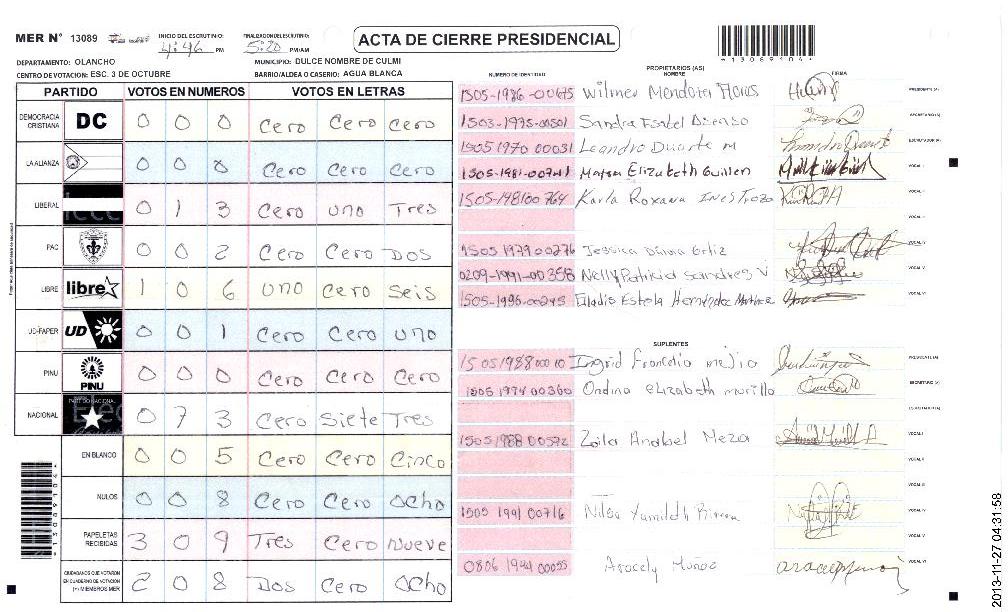 MER N° 13089
INICIO DEL ESCRUTINIO: 4:46 PM
FINALIZACION DEL ESCRUTINIO: 5:20 PM/AM
ACTA DE CIERRE PRESIDENCIAL
13089104
DEPARTAMENTO: OLANCHO
MUNICIPIO: DULCE NOMBRE DE CULMI
CENTRO DE VOTACION: ESC. 3 DE OCTUBRE
BARRIO/ALDEA O CASERIO: AGUA BLANCA
PARTIDO VOTOS EN NUMEROS VOTOS EN LETRAS
DEMOCRACIA CRISTIANA DC 0 0 0 Cero Cero Cero
LA ALIANZA 0 0 0 Cero Cero Cero
LIBERAL 0 1 3 Cero uno Tres
PAC 0 0 2 Cero Cero Dos
LIBRE libre 1 0 6 uno Cero Seis
UD-FAPER UD 0 0 1 Cero Cero uno
PINU PINU 0 0 0 Cero Cero Cero
NACIONAL 0 7 3 Cero Siete Tres
EN BLANCO 0 0 5 Cero Cero Cinco
NULOS 0 0 8 Cero Cero Ocho
PAPELETAS RECIBIDAS 3 0 9 Tres Cero Nueve
CIUDADANOS QUE VOTARON EN CUADERNO DE VOTACION (+) MIEMBROS MER 2 0 8 Dos Cero Ocho
PROPIETARIOS (AS)
NUMERO DE IDENTIDAD NOMBRE FIRMA
1505-1986-00675 Wilmer Mendoza Flores PRESIDENTE (A)
1503-1975-00501 Sandra Isabel SECRETARIO (A)
1505 1970 00031 Leandro Duarte M ESCRUTADOR (A)
1505-1981-00741 Mayra Elizabeth Guillen VOCAL I
1505-1981 00 764 Karla Roxana Inestroza VOCAL II
VOCAL III
1505 1979 00276 Jessica Ortiz VOCAL IV
0209-1991-00358 Nelly Patricia VOCAL V
1505-1996-00245 Gladis Estela Hernández Martinez VOCAL VI
SUPLENTES
1505 1988 000 10 Ingrid mejia PRESIDENTE (A)
1505 1974 00360 Ondina elizabeth murillo SECRETARIO (A)
ESCRUTADOR (A)
1505 1988 00592 Zoila Anabel Meza VOCAL I
VOCAL II
VOCAL III
1505 1991 00716 Yamileth Rivera VOCAL IV
VOCAL V
0806 1994 00055 Aracely Muñoz VOCAL VI
13089104
2013-11-27 04:31:58